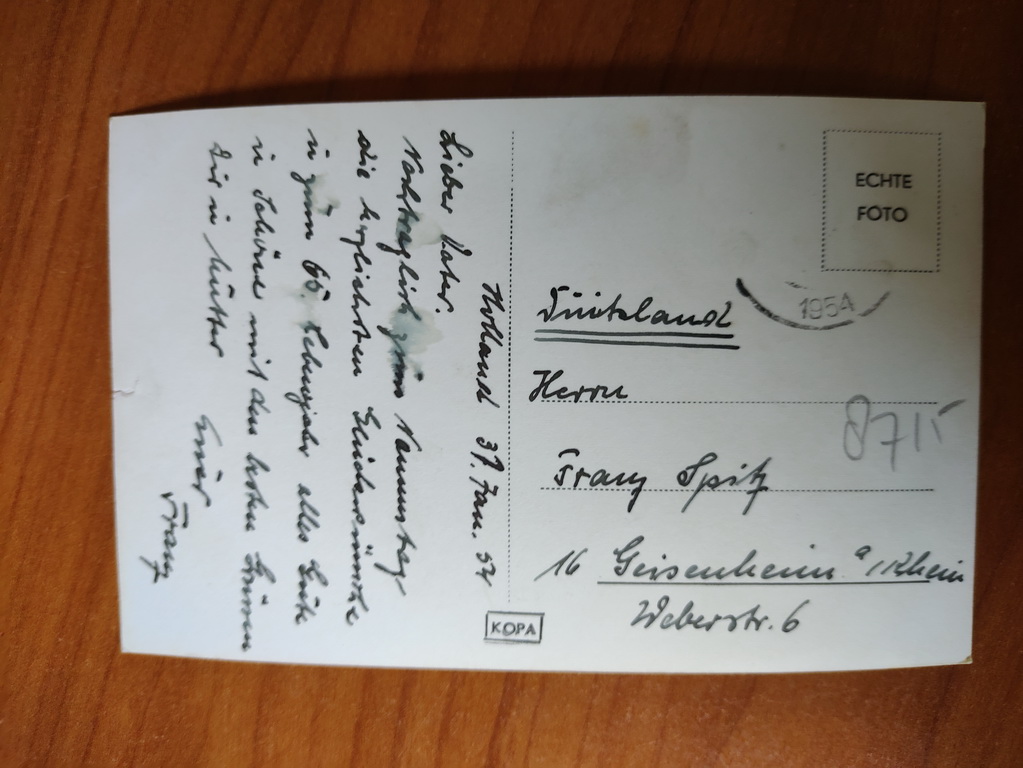 Holland 31. Jan. 54
Lieber Vater.
Nachträglich zum Namenstag
die herzlichsten Glückwünsche
u zum 65. Lebensjahr alles Gute
u Schöne mit den besten Grüssen
Dir u Mutter
Euer
Franz
ECHTE
FOTO
1954
Herrn
8715
Franz Spitz
16 Geisenheim a/Rhein
Weberstr. 6
KOPA